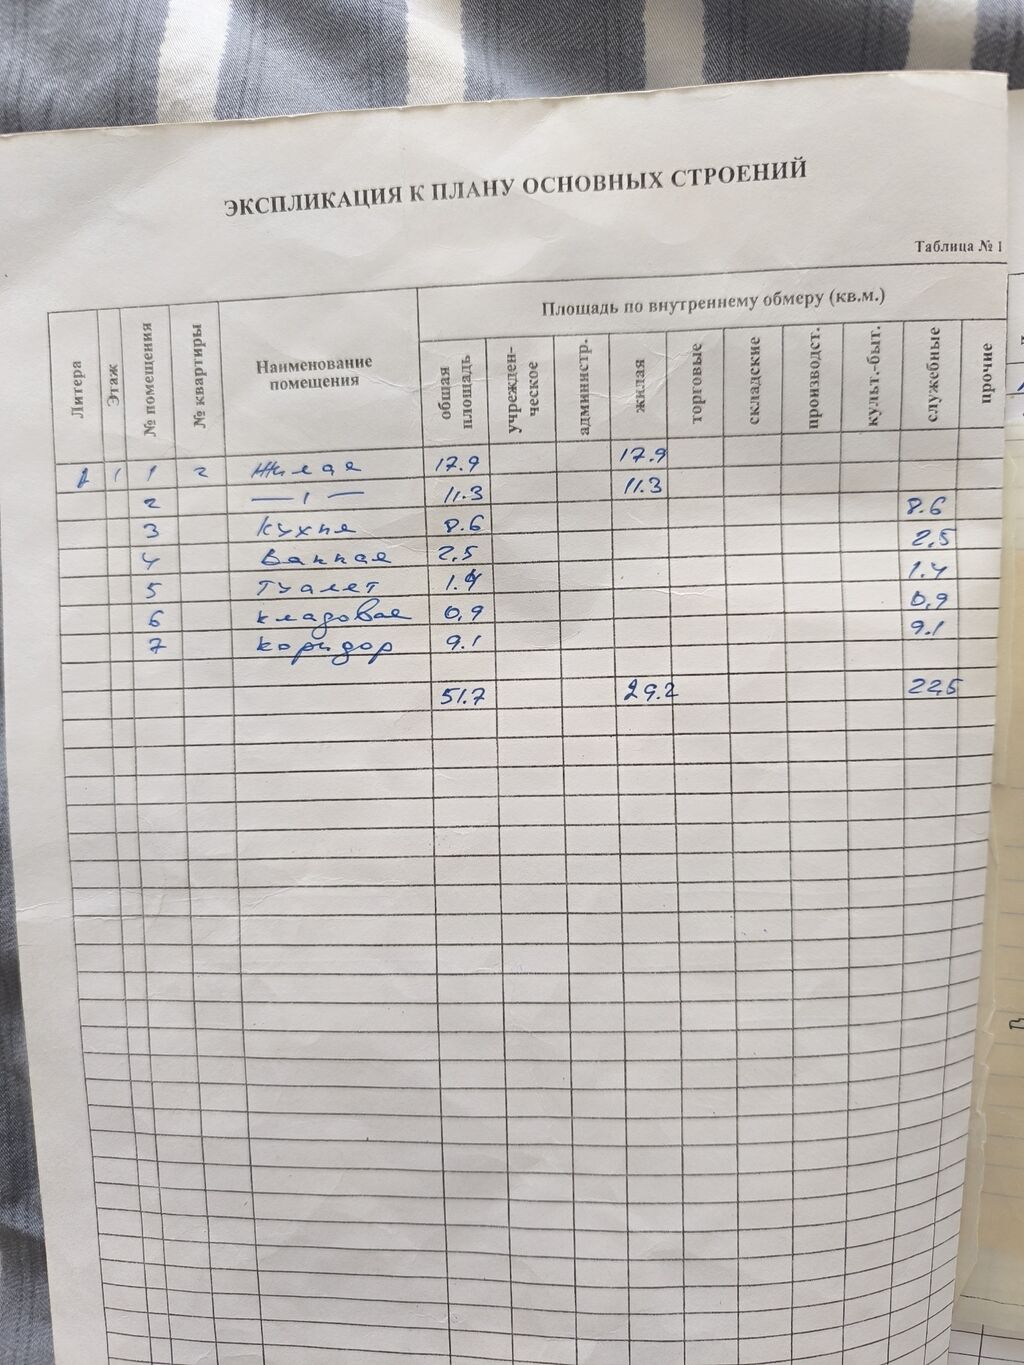 ЭКСПЛИКАЦИЯ К ПЛАНУ ОСНОВНЫХ СТРОЕНИЙ
Таблица № 1
Литера Этаж № помещения № квартиры Наименование помещения Площадь по внутреннему обмеру (кв.м.)
общая площадь учрежден-ческое администр. жилая торговые складские производст. культ.-быт. служебные прочие
1 1 1 2 Жилая 17.9 17.9
2 — 1 — 11.3 11.3
3 Кухня 8.6 8.6
4 Ванная 2,5 2,5
5 Туалет 1.4 1.4
6 кладовая 0,9 0,9
7 коридор 9.1 9.1
51.7 29.2 22,5